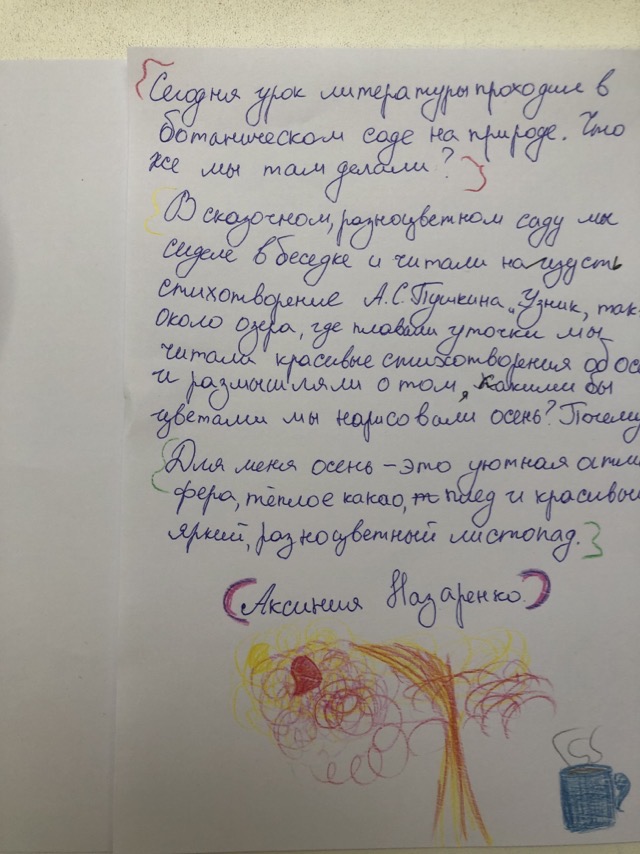 Сегодня урок литературы проходил в
ботаническом саде на природе. Что
же мы там делали?
В сказочном, разноцветном саду мы
сидели в беседке и читали наизусть
стихотворение А.С.Пушкина „Узник, так-
около озера, где плавали уточки мы
читали красивые стихотворения об ос
и размышляли о том, какими бы
цветами мы нарисовали осень? Почему
Для меня осень – это уютная атмо
фера, тёплое какао, плед и красивый
яркий, разноцветный листопад.
(Аксиния Назаренко.)